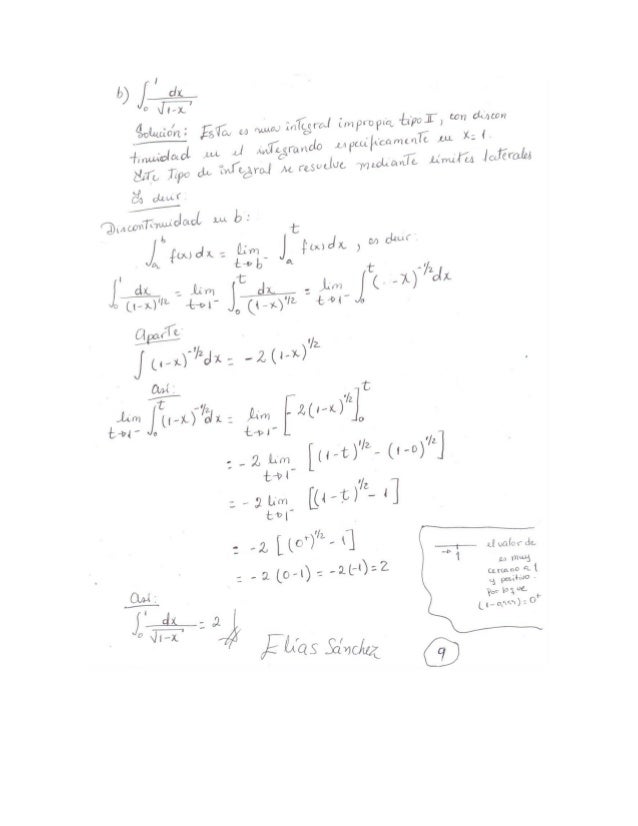 b) ∫₀¹ dx/√(1-x)
Solución: Esta es una integral impropia tipo II, con discon
tinuidad en el integrando especificamente en x=1.
Este Tipo de integral se resuelve mediante limites laterales
Es decir:
Discontinuidad en b:
∫ₐᵇ f(x)dx = lim t→b⁻ ∫ₐᵗ f(x)dx, es decir:
∫₀¹ dx/(1-x)^1/2 = lim t→1⁻ ∫₀ᵗ dx/(1-x)^1/2 = lim t→1⁻ ∫₀ᵗ (1-x)^-1/2 dx
Aparte:
∫(1-x)^-1/2 dx = -2(1-x)^1/2
Asi:
lim t→1⁻ ∫₀ᵗ (1-x)^-1/2 dx = lim t→1⁻ [-2(1-x)^1/2]₀ᵗ
= -2 lim t→1⁻ [(1-t)^1/2 - (1-0)^1/2]
= -2 lim t→1⁻ [(1-t)^1/2 - 1]
= -2 [(0⁺)^1/2 - 1]
= -2 (0-1) = -2(-1) = 2
→ 1
el valor de
es muy
cercano a 1
y positivo.
Por lo que
(1-0,999)=0⁺
Asi:
∫₀¹ dx/√(1-x) = 2
Elías Sánchez
9